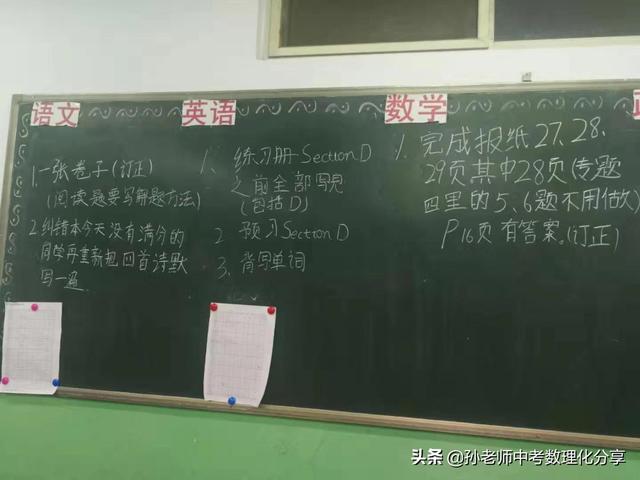 语文
1.一张卷子(订正)
(阅读题要写解题方法)
2.纠错本今天没有满分的
同学再重新把四首诗默
写一遍
英语
1、练习册Section D
之前全部写完
(包括D)
2 预习Section D
3、背写单词
数学
1、完成报纸27、28、
29页其中28页(专题
四里的5、6题不用做)
P16页有答案。(订正)
头条 @孙老师中考数理化分享